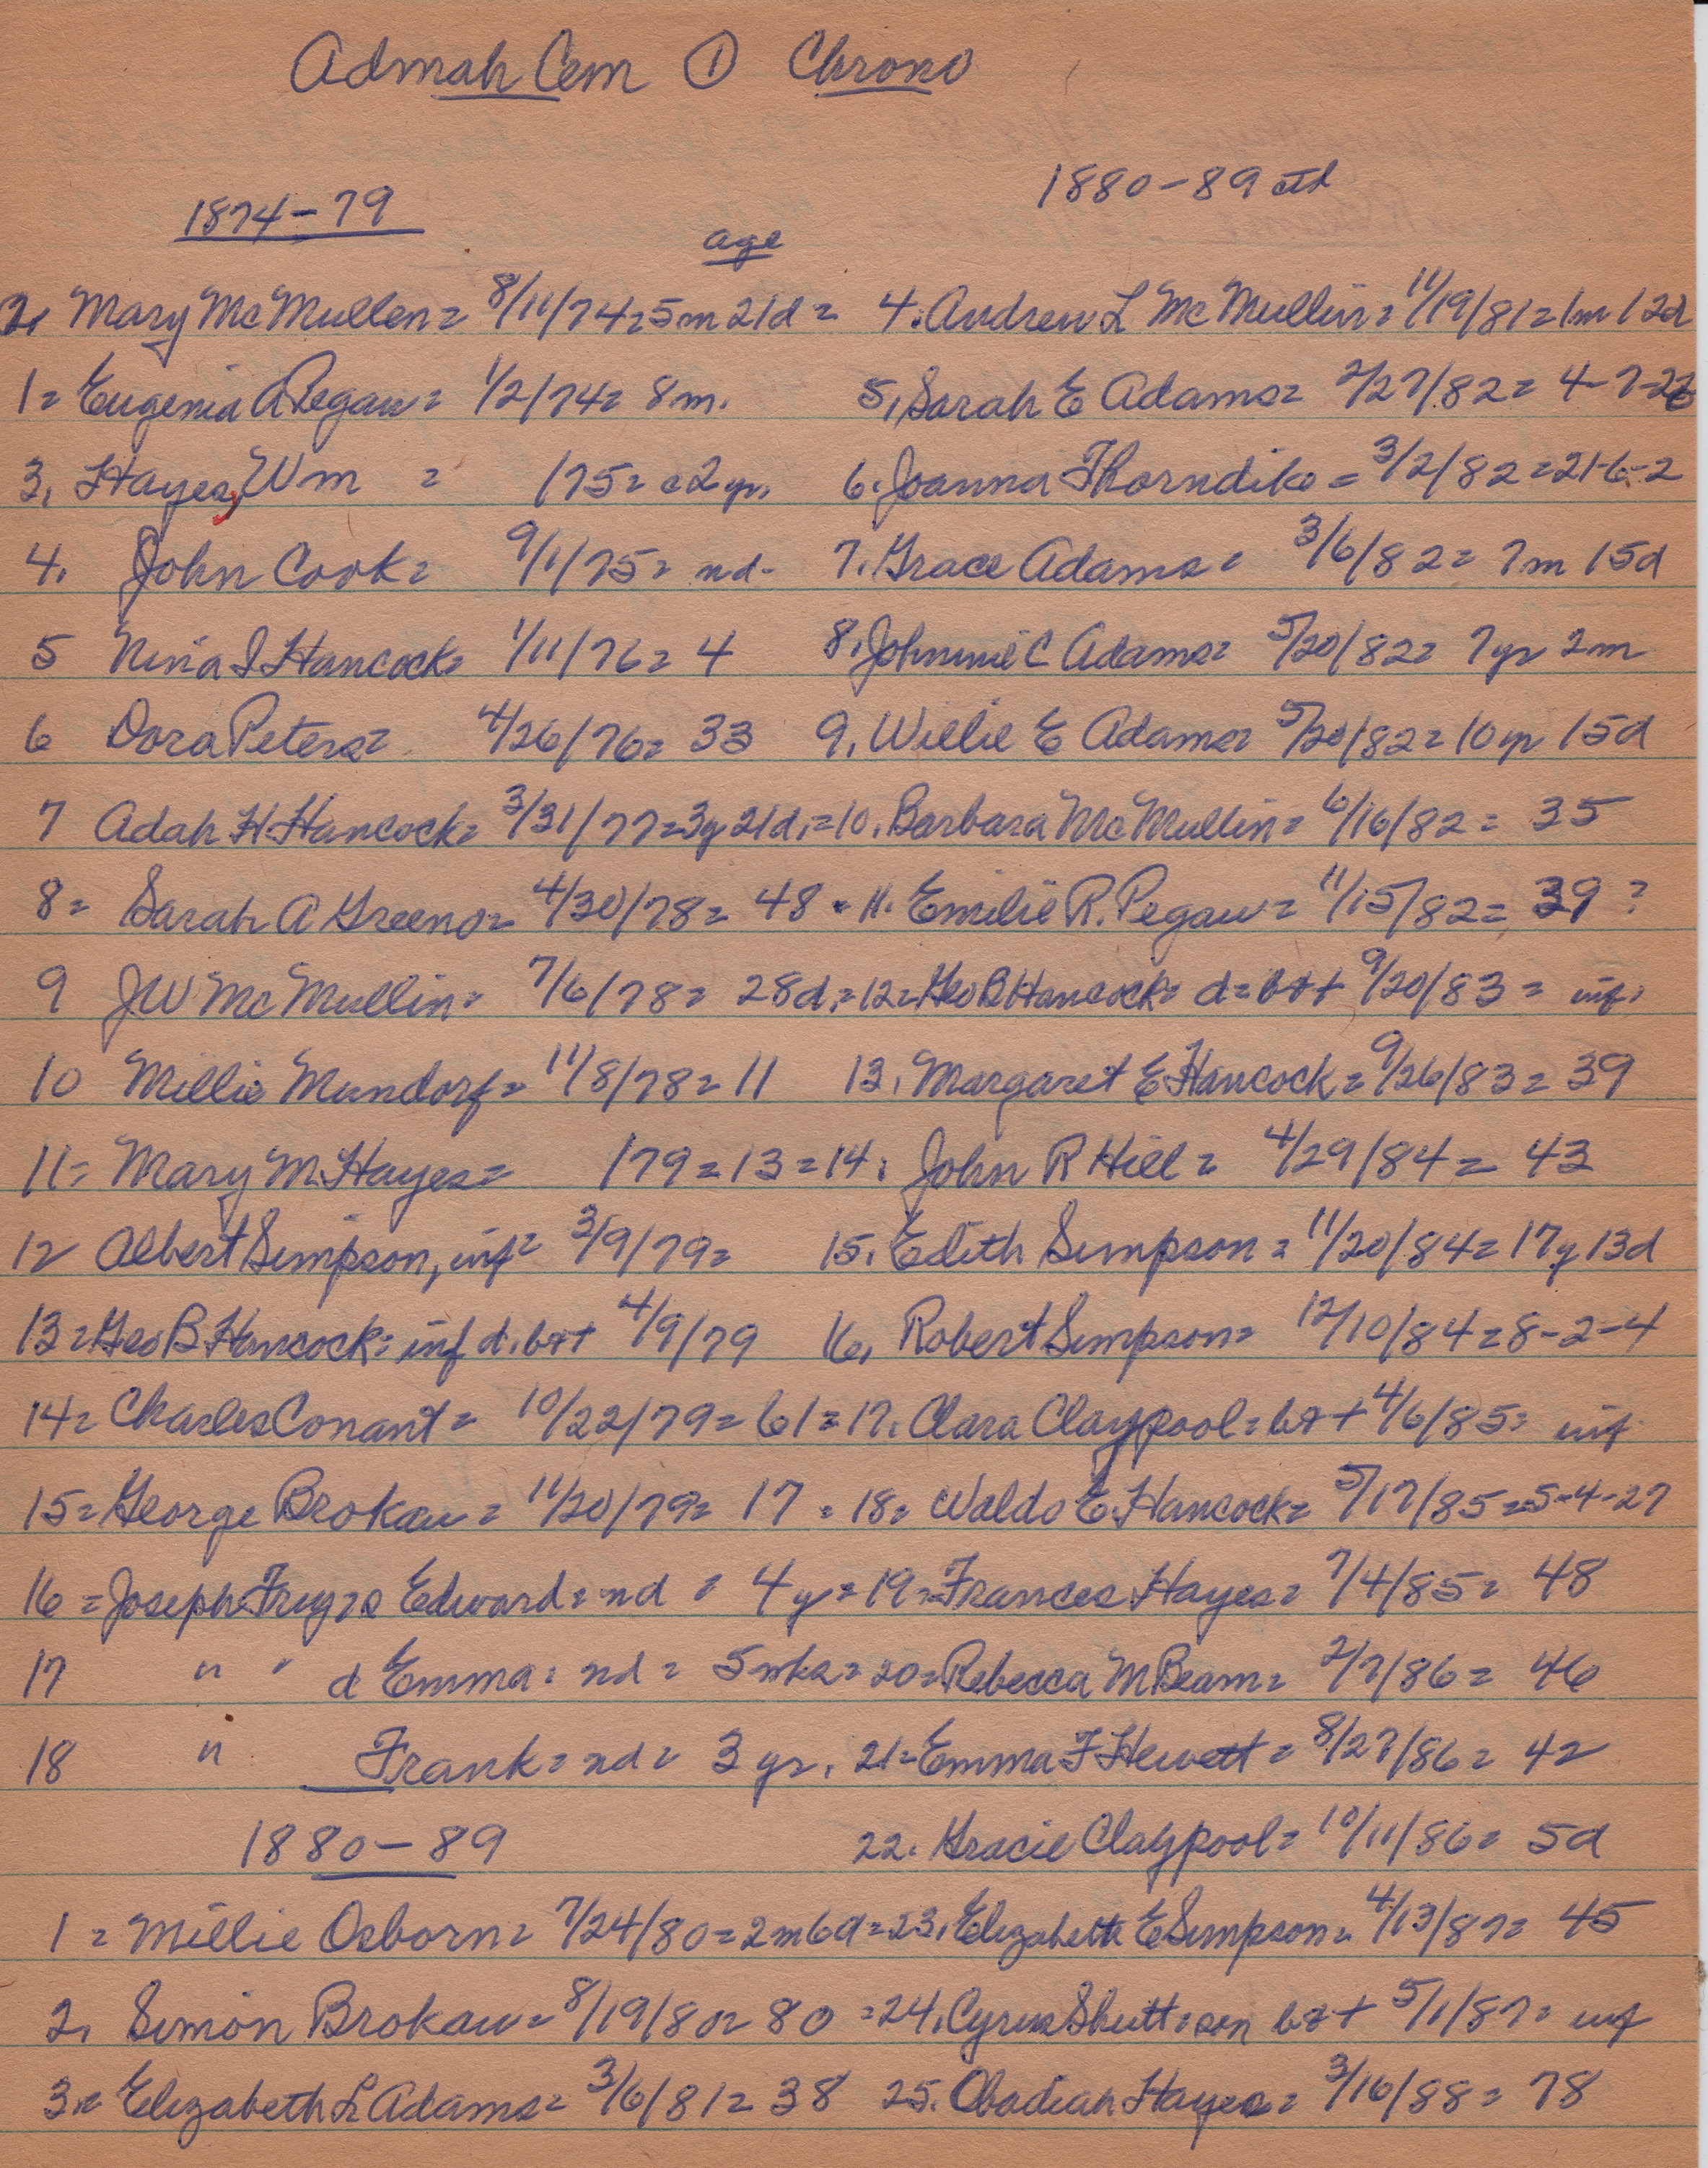 Admah Cem ① Chrono
1874-79
age
2. Mary McMullen = 8/11/74 = 5m 21d =
1 = Eugenia A Pegau = 1/2/74 = 8m.
3. Hayes, Wm = /75 = c2yr.
4. John Cook = 9/1/75 = nd-
5 Nina I Hancock = 1/11/76 = 4
6 Dora Peters = 4/26/76 = 33
7 Adah H. Hancock = 3/31/77 = 3y 21d. =
8 = Sarah A Greeno = 4/30/78 = 48 =
9 JW McMullin = 7/6/78 = 28d. =
10 Millie Mundorf = 11/8/78 = 11
11 = Mary M. Hayes = /79 = 13 =
12 Albert Simpson, inf = 3/9/79 =
13 = Geo B Hancock = inf d. b&+ 4/9/79
14 = Charles Conant = 10/22/79 = 61 =
15 = George Brokaw = 11/20/79 = 17 =
16 = Joseph Frey = s Edward = nd = 4y =
17 " " d Emma = nd = 5 wks =
18 " Frank = nd = 3 yr.
1880-89
1 = Millie Osborn = 7/24/80 = 2m6d =
2. Simon Brokaw = 8/19/80 = 80 =
3. = Elizabeth L Adams = 3/6/81 = 38
1880-89 ctd
4. Andrew L McMullin = 11/19/81 = 1m 12d
5. Sarah E Adams = 2/27/82 = 4-7-26
6. Joanna Thorndike = 3/2/82 = 21-6-2
7. Grace Adams = 3/6/82 = 7m 15d
8. Johnnie C Adams = 5/20/82 = 7yr 2m
9. Willie E Adams = 5/20/82 = 10yr 15d
10. Barbara McMullin = 6/16/82 = 35
11. Emilie R. Pegau = 11/15/82 = 39 ?
12 = Geo B Hancock = d = b&+ 9/20/83 = inf.
13. Margaret E Hancock = 9/26/83 = 39
14. John R Hill = 4/29/84 = 43
15. Edith Simpson = 11/20/84 = 17y 13d
16. Robert Simpson = 12/10/84 = 8-2-4
17. Clara Claypool = b&+ 4/6/85 = inf
18 = Waldo E. Hancock = 5/17/85 = 5-4-27
19 = Frances Hayes = 7/4/85 = 48
20 = Rebecca M Beam = 2/7/86 = 46
21 = Emma F Hewett = 8/27/86 = 42
22. Gracie Claypool = 10/11/86 = 5d
23. Elizabeth E Simpson = 4/13/87 = 45
24. Cyrus Shutt = son b&+ 5/1/87 = inf
25. Obadiah Hayes = 3/16/88 = 78